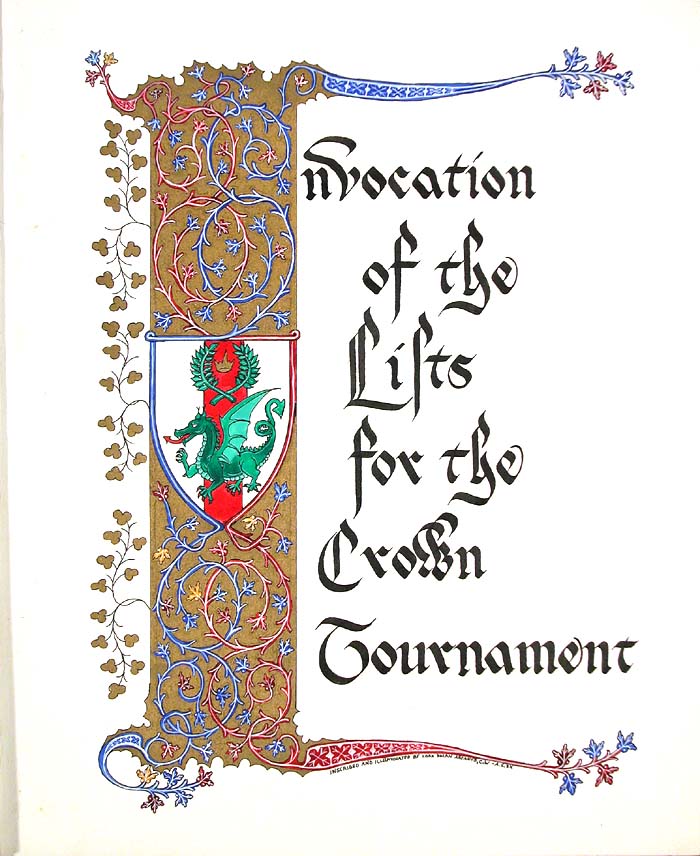 Invocation
of the
Liſts
for the
Crown
Tournament
INSCRIBED AND ILLUMINATED BY LORD